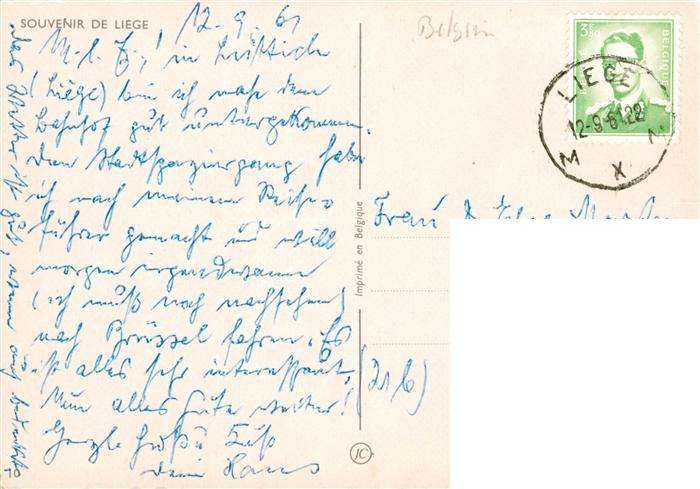 SOUVENIR DE LIEGE
12.9.61
M. l. ! in Lüttich
(Liège) bin ich nahe dem
Bahnhof gut untergekommen.
Den Stadtspaziergang habe
ich nach meinem Reise-
führer gemacht und will
morgen irgendwann
(ich muß noch nachsehen)
nach Brüssel fahren. Es
ist alles sehr interessant.
Nun alles Gute weiter!
Herzl. Grüße Euch
dein Hans
das Wetter ist gut, wenn auch
Belgien
3F50
BELGIQUE
LIEGE
12-9-61 22
M X M
Frau
Imprimé en Belgique
(216)
JC